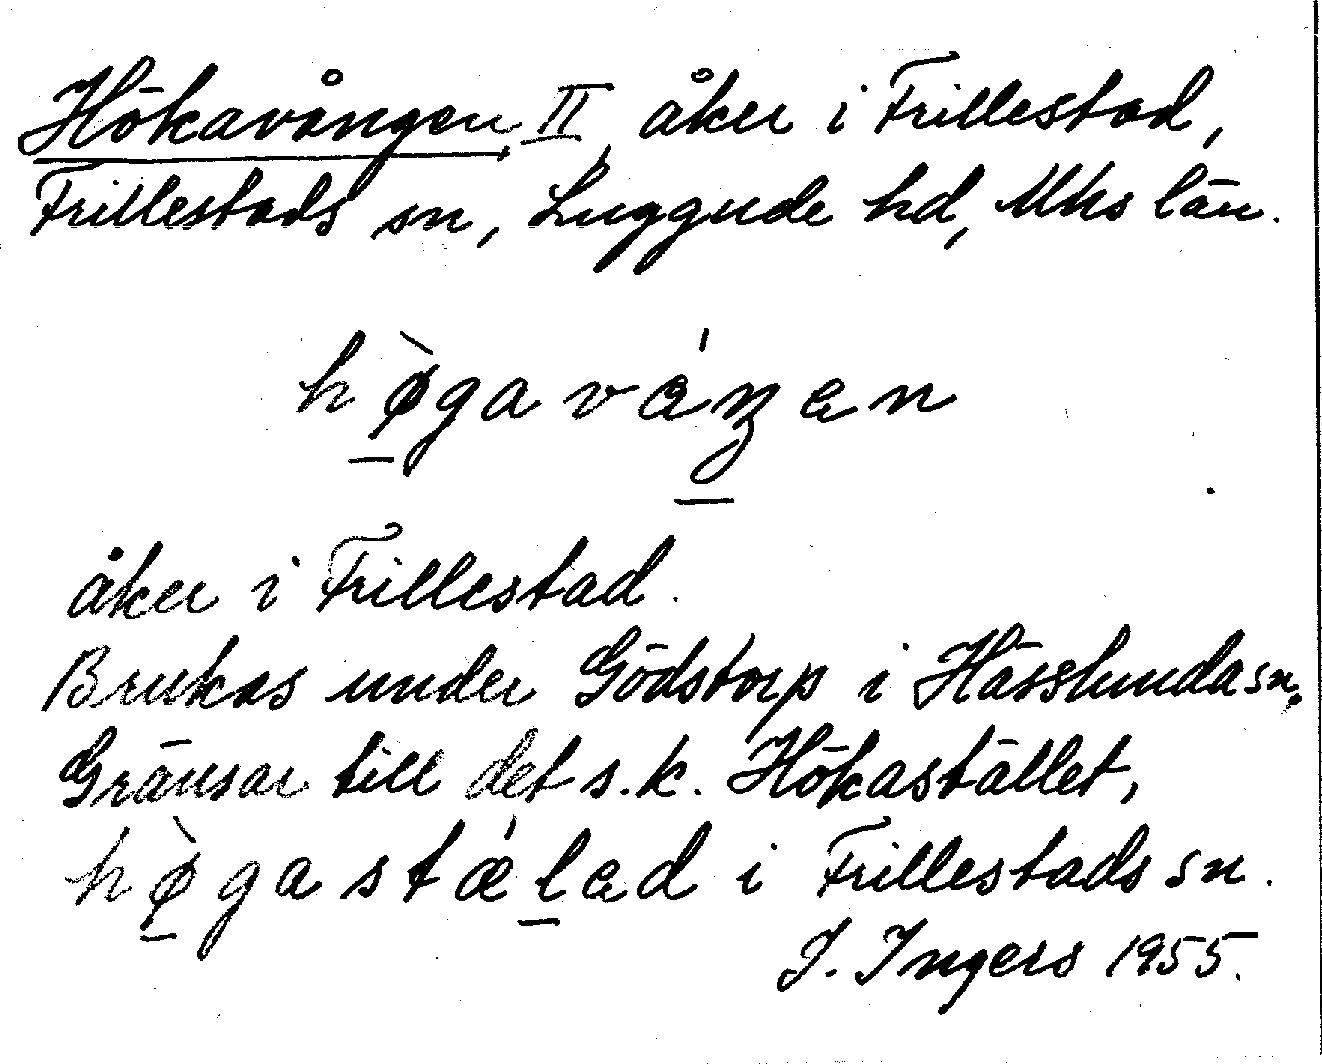 Hökavången II, åker i Frillestad,
Frillestads sn, Luggude hd, Mhs län.
hø̀gaváŋen
åker i Frillestad.
Brukas under Gödstorp i Hässlunda sn.
Gränsar till det s.k. Hökastället,
hø̀gastǽled i Frillestads sn.
I. Ingers 1955.